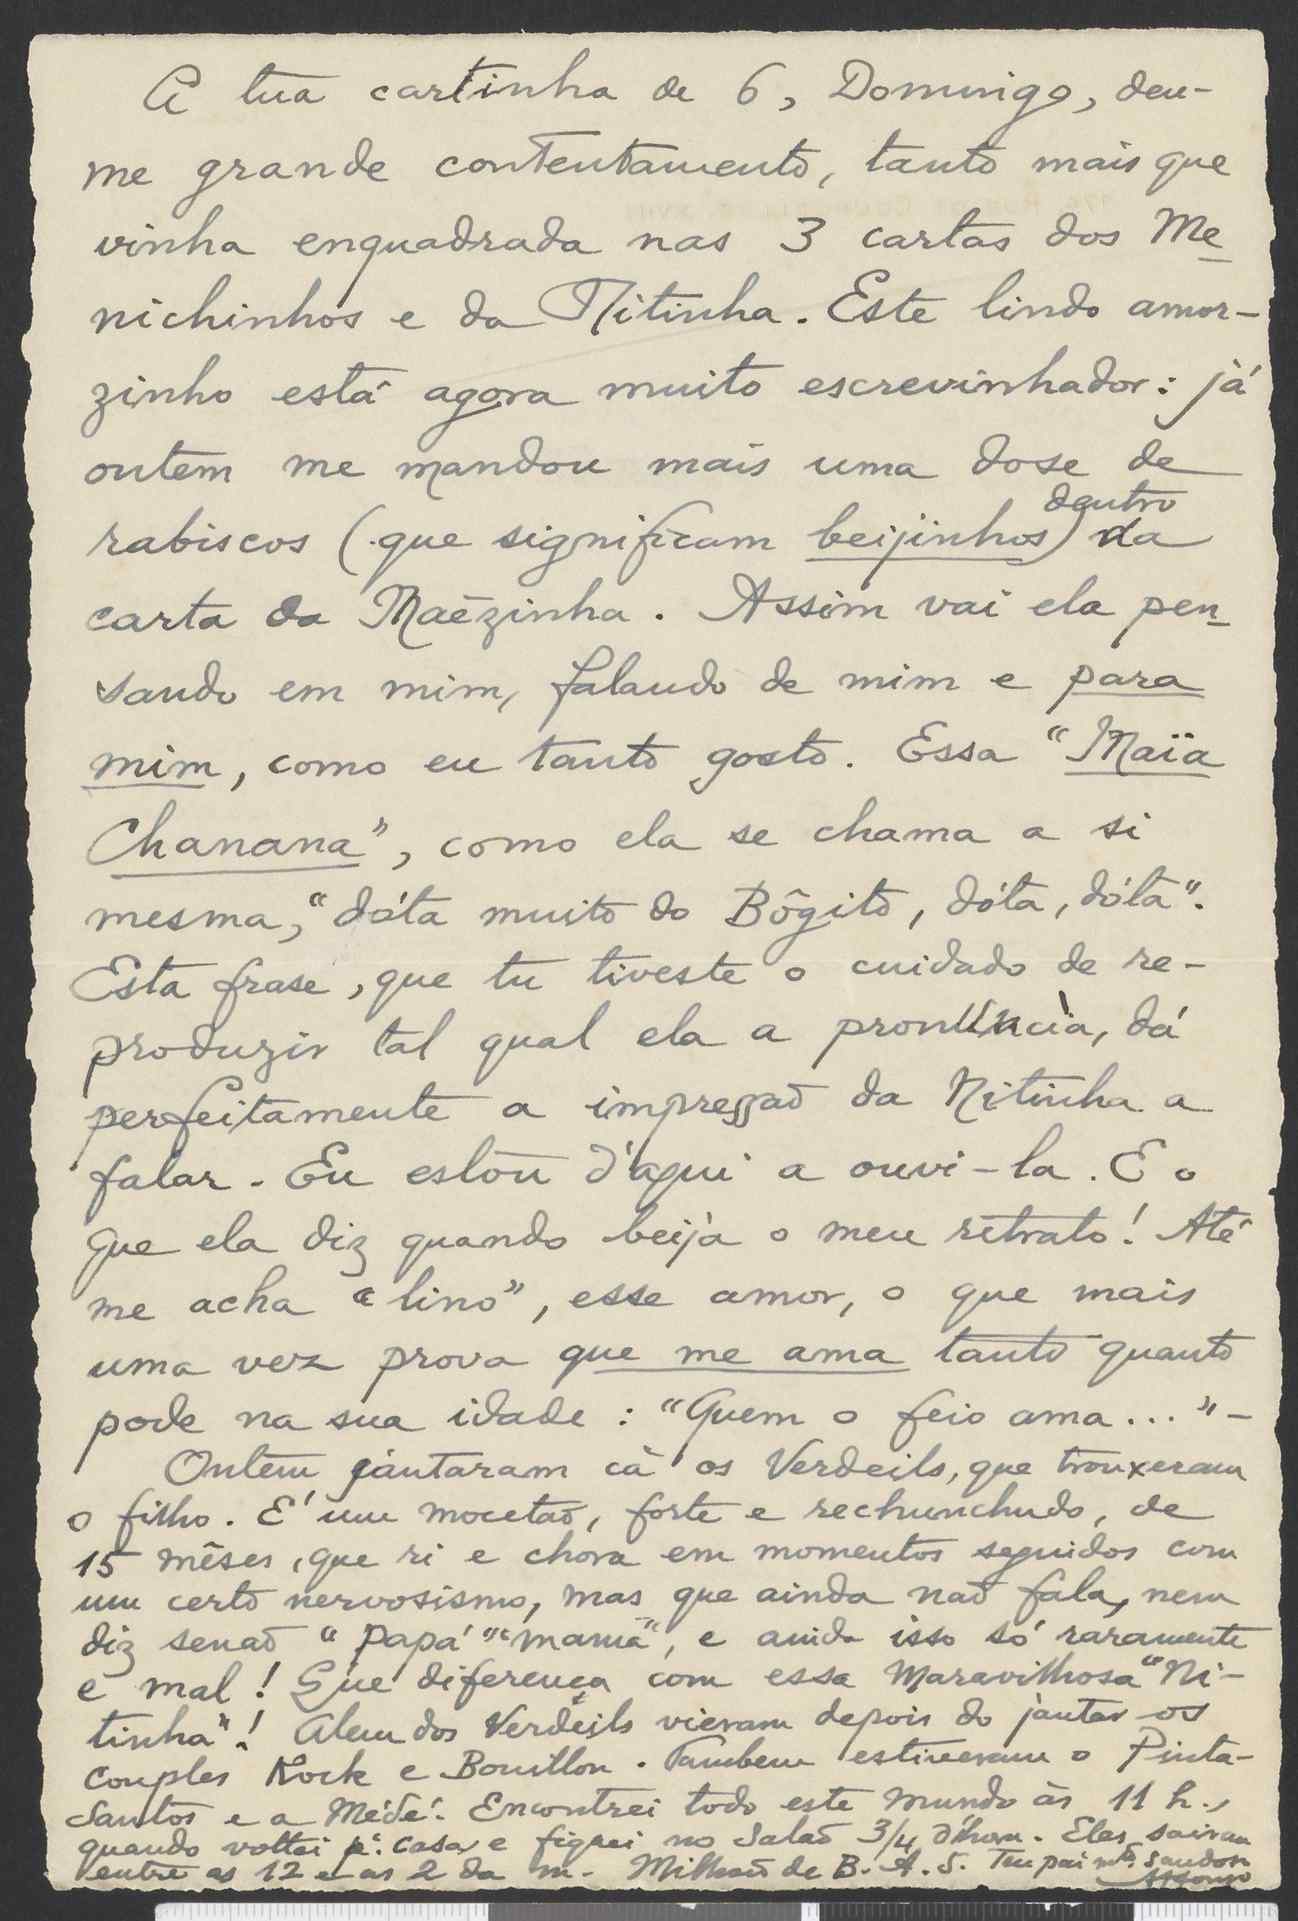 A tua cartinha de 6, Domingo, deu-
me grande contentamento, tanto mais que
vinha enquadrada nas 3 cartas dos Me
nichinhos e da Nitinha. Este lindo amor-
zinho está agora muito escrevinhador: já
ontem me mandou mais uma dose de
dentro
rabiscos (que significam beijinhos) da
carta da Maēzinha. Assim vai ela pen
sando em mim, falando de mim e para
mim, como eu tanto gosto. Essa "Maïa
Chanana", como ela se chama a si
mesma, "dóta muito do Bôgito, dóta, dóta".
Esta frase, que tu tiveste o cuidado de re-
produzir tal qual ela a pronúncia, dá
perfeitamente a impressaõ da Nitinha a
falar. Eu estou d'aqui a ouvi-la. E o
que ela diz quando beija o meu retrato! Até
me acha "lino", esse amor, o que mais
uma vez prova que me ama tanto quanto
pode na sua idade: "Quem o feio ama..." -
Ontem jantaram cà os Verdeils, que trouxeram
o filho. E' um mocetaõ, forte e rechunchudo, de
15 mêses, que ri e chora em momentos seguidos com
um certo nervosismo, mas que ainda naõ fala, nem
diz senaõ "papá" "mamã", e ainda isso só raramente
e mal! Que diferença com essa maravilhosa "Ni-
tinha"! Alem dos Verdeils vieram depois do jantar os
couples Rock e Bouillon. Tambem estiveram o Pinta-
Santos e a Médé. Encontrei todo este mundo às 11 h.,
quando voltei pª. casa, e fiquei no salaõ 3/4 d'hora. Eles sairam
entre as 12 e as 2 da m. Milhaõ de B. A. S. Teu pai mtº. saudoso
Afonso